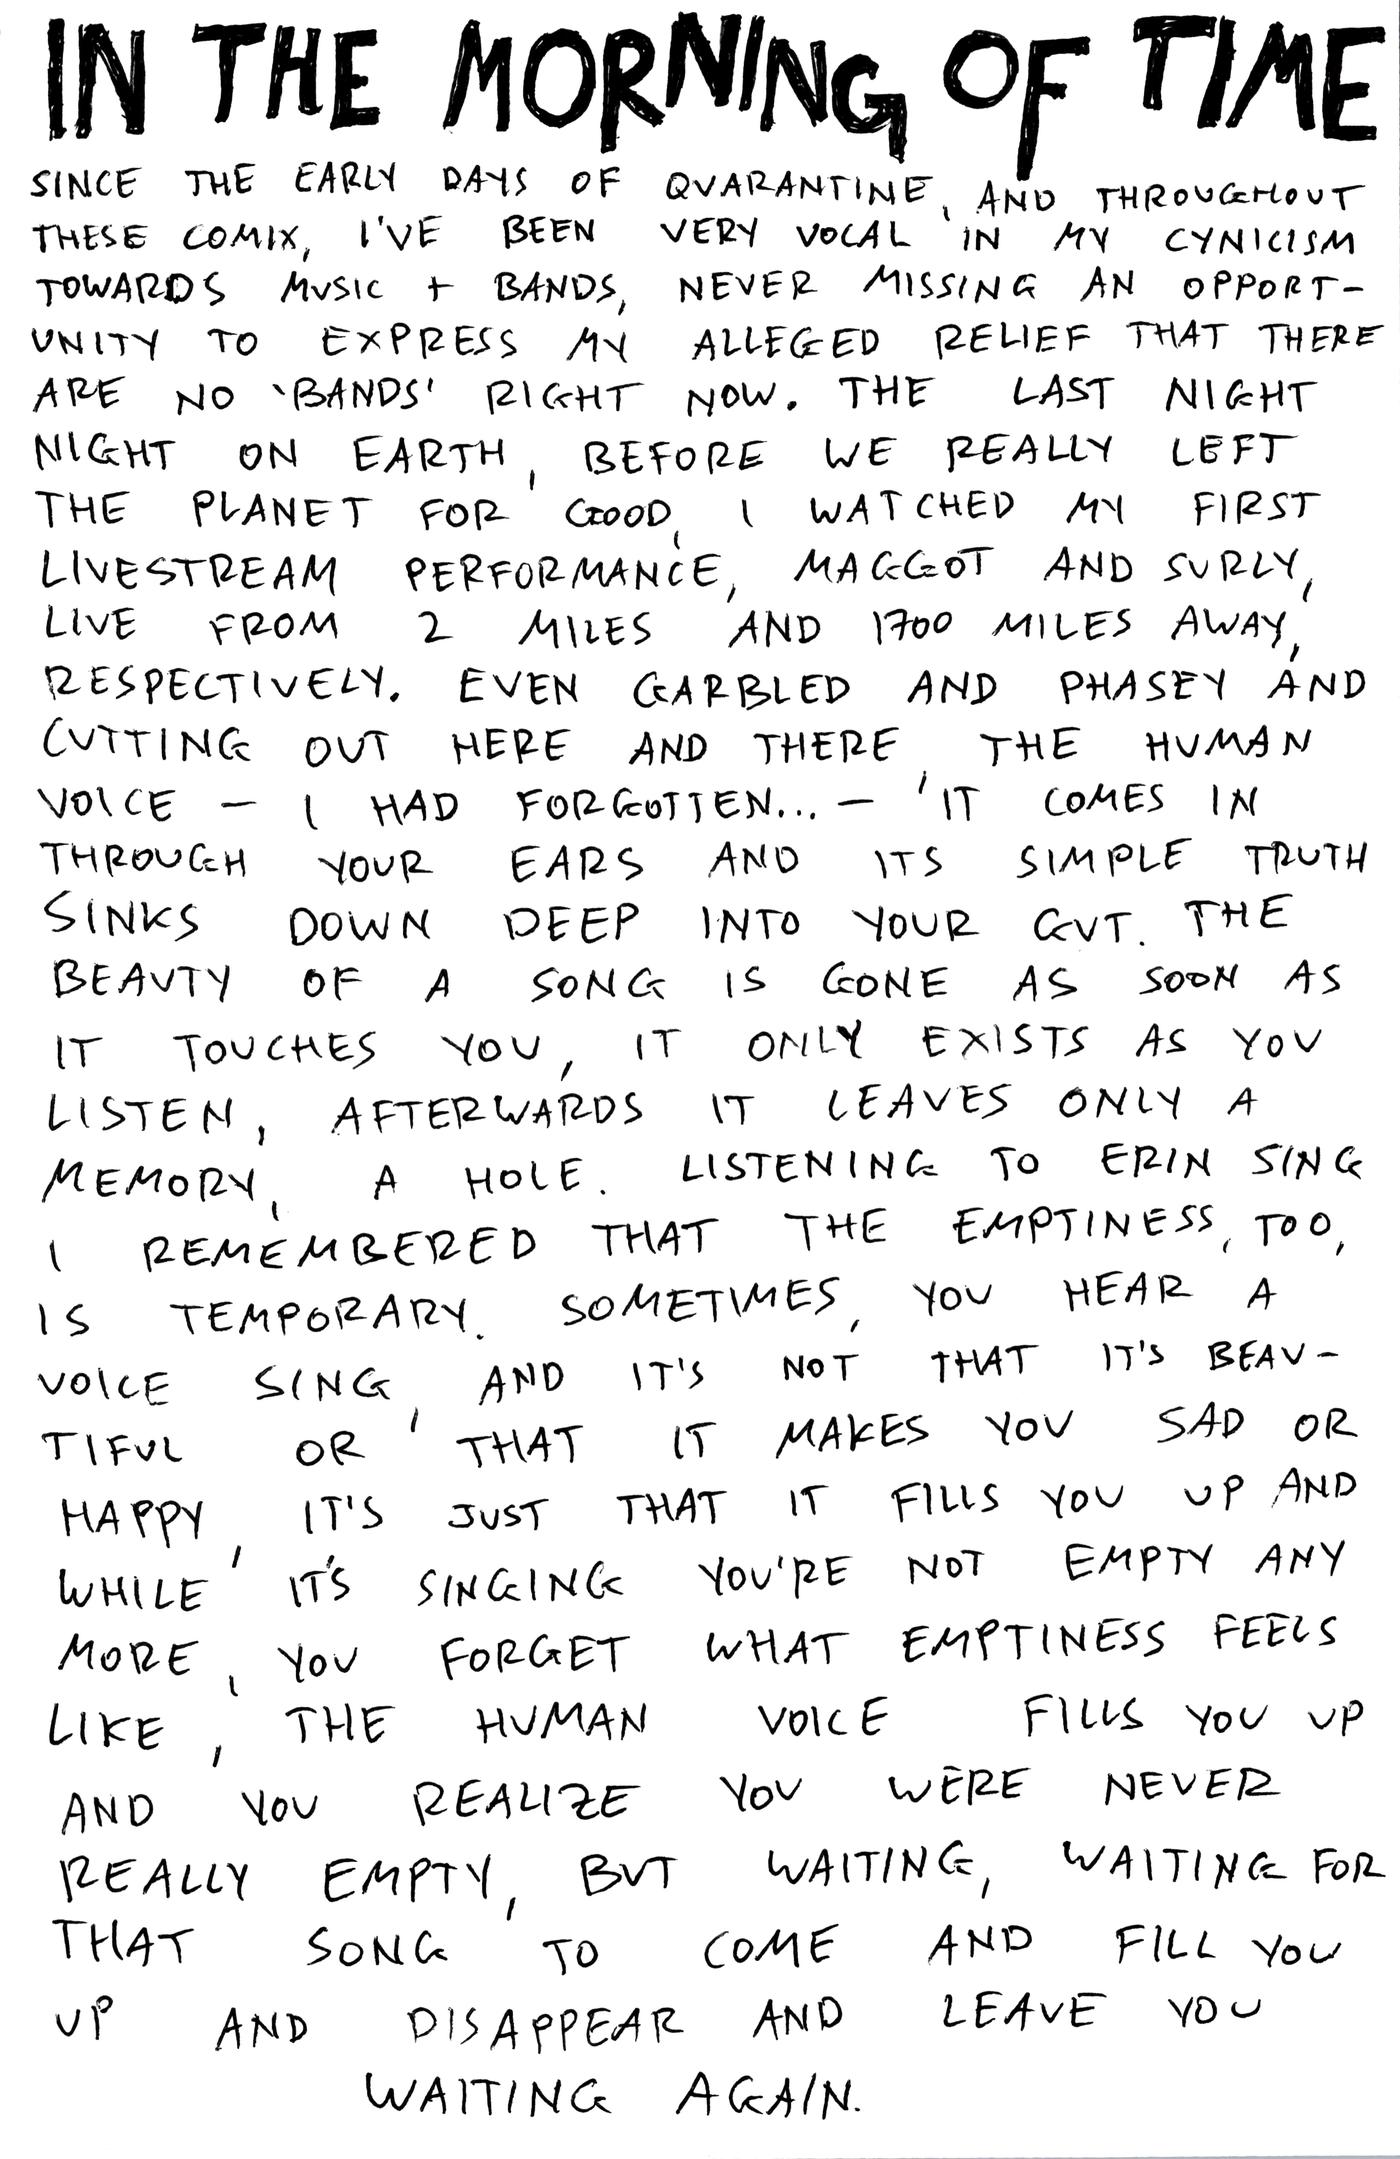 IN THE MORNING OF TIME
SINCE THE EARLY DAYS OF QUARANTINE, AND THROUGHOUT
THESE COMIX, I'VE BEEN VERY VOCAL IN MY CYNICISM
TOWARDS MUSIC + BANDS, NEVER MISSING AN OPPORT-
UNITY TO EXPRESS MY ALLEGED RELIEF THAT THERE
ARE NO 'BANDS' RIGHT NOW. THE LAST NIGHT
NIGHT ON EARTH, BEFORE WE REALLY LEFT
THE PLANET FOR GOOD, I WATCHED MY FIRST
LIVESTREAM PERFORMANCE, MAGGOT AND SURLY,
LIVE FROM 2 MILES AND 1700 MILES AWAY,
RESPECTIVELY. EVEN GARBLED AND PHASEY AND
CUTTING OUT HERE AND THERE, THE HUMAN
VOICE – I HAD FORGOTTEN... – IT COMES IN
THROUGH YOUR EARS AND ITS SIMPLE TRUTH
SINKS DOWN DEEP INTO YOUR GUT. THE
BEAUTY OF A SONG IS GONE AS SOON AS
IT TOUCHES YOU, IT ONLY EXISTS AS YOU
LISTEN, AFTERWARDS IT LEAVES ONLY A
MEMORY, A HOLE. LISTENING TO ERIN SING
I REMEMBERED THAT THE EMPTINESS, TOO,
IS TEMPORARY. SOMETIMES, YOU HEAR A
VOICE SING, AND IT'S NOT THAT IT'S BEAU-
TIFUL OR THAT IT MAKES YOU SAD OR
HAPPY, IT'S JUST THAT IT FILLS YOU UP AND
WHILE IT'S SINGING YOU'RE NOT EMPTY ANY
MORE, YOU FORGET WHAT EMPTINESS FEELS
LIKE, THE HUMAN VOICE FILLS YOU UP
AND YOU REALIZE YOU WERE NEVER
REALLY EMPTY, BUT WAITING, WAITING FOR
THAT SONG TO COME AND FILL YOU
UP AND DISAPPEAR AND LEAVE YOU
WAITING AGAIN.